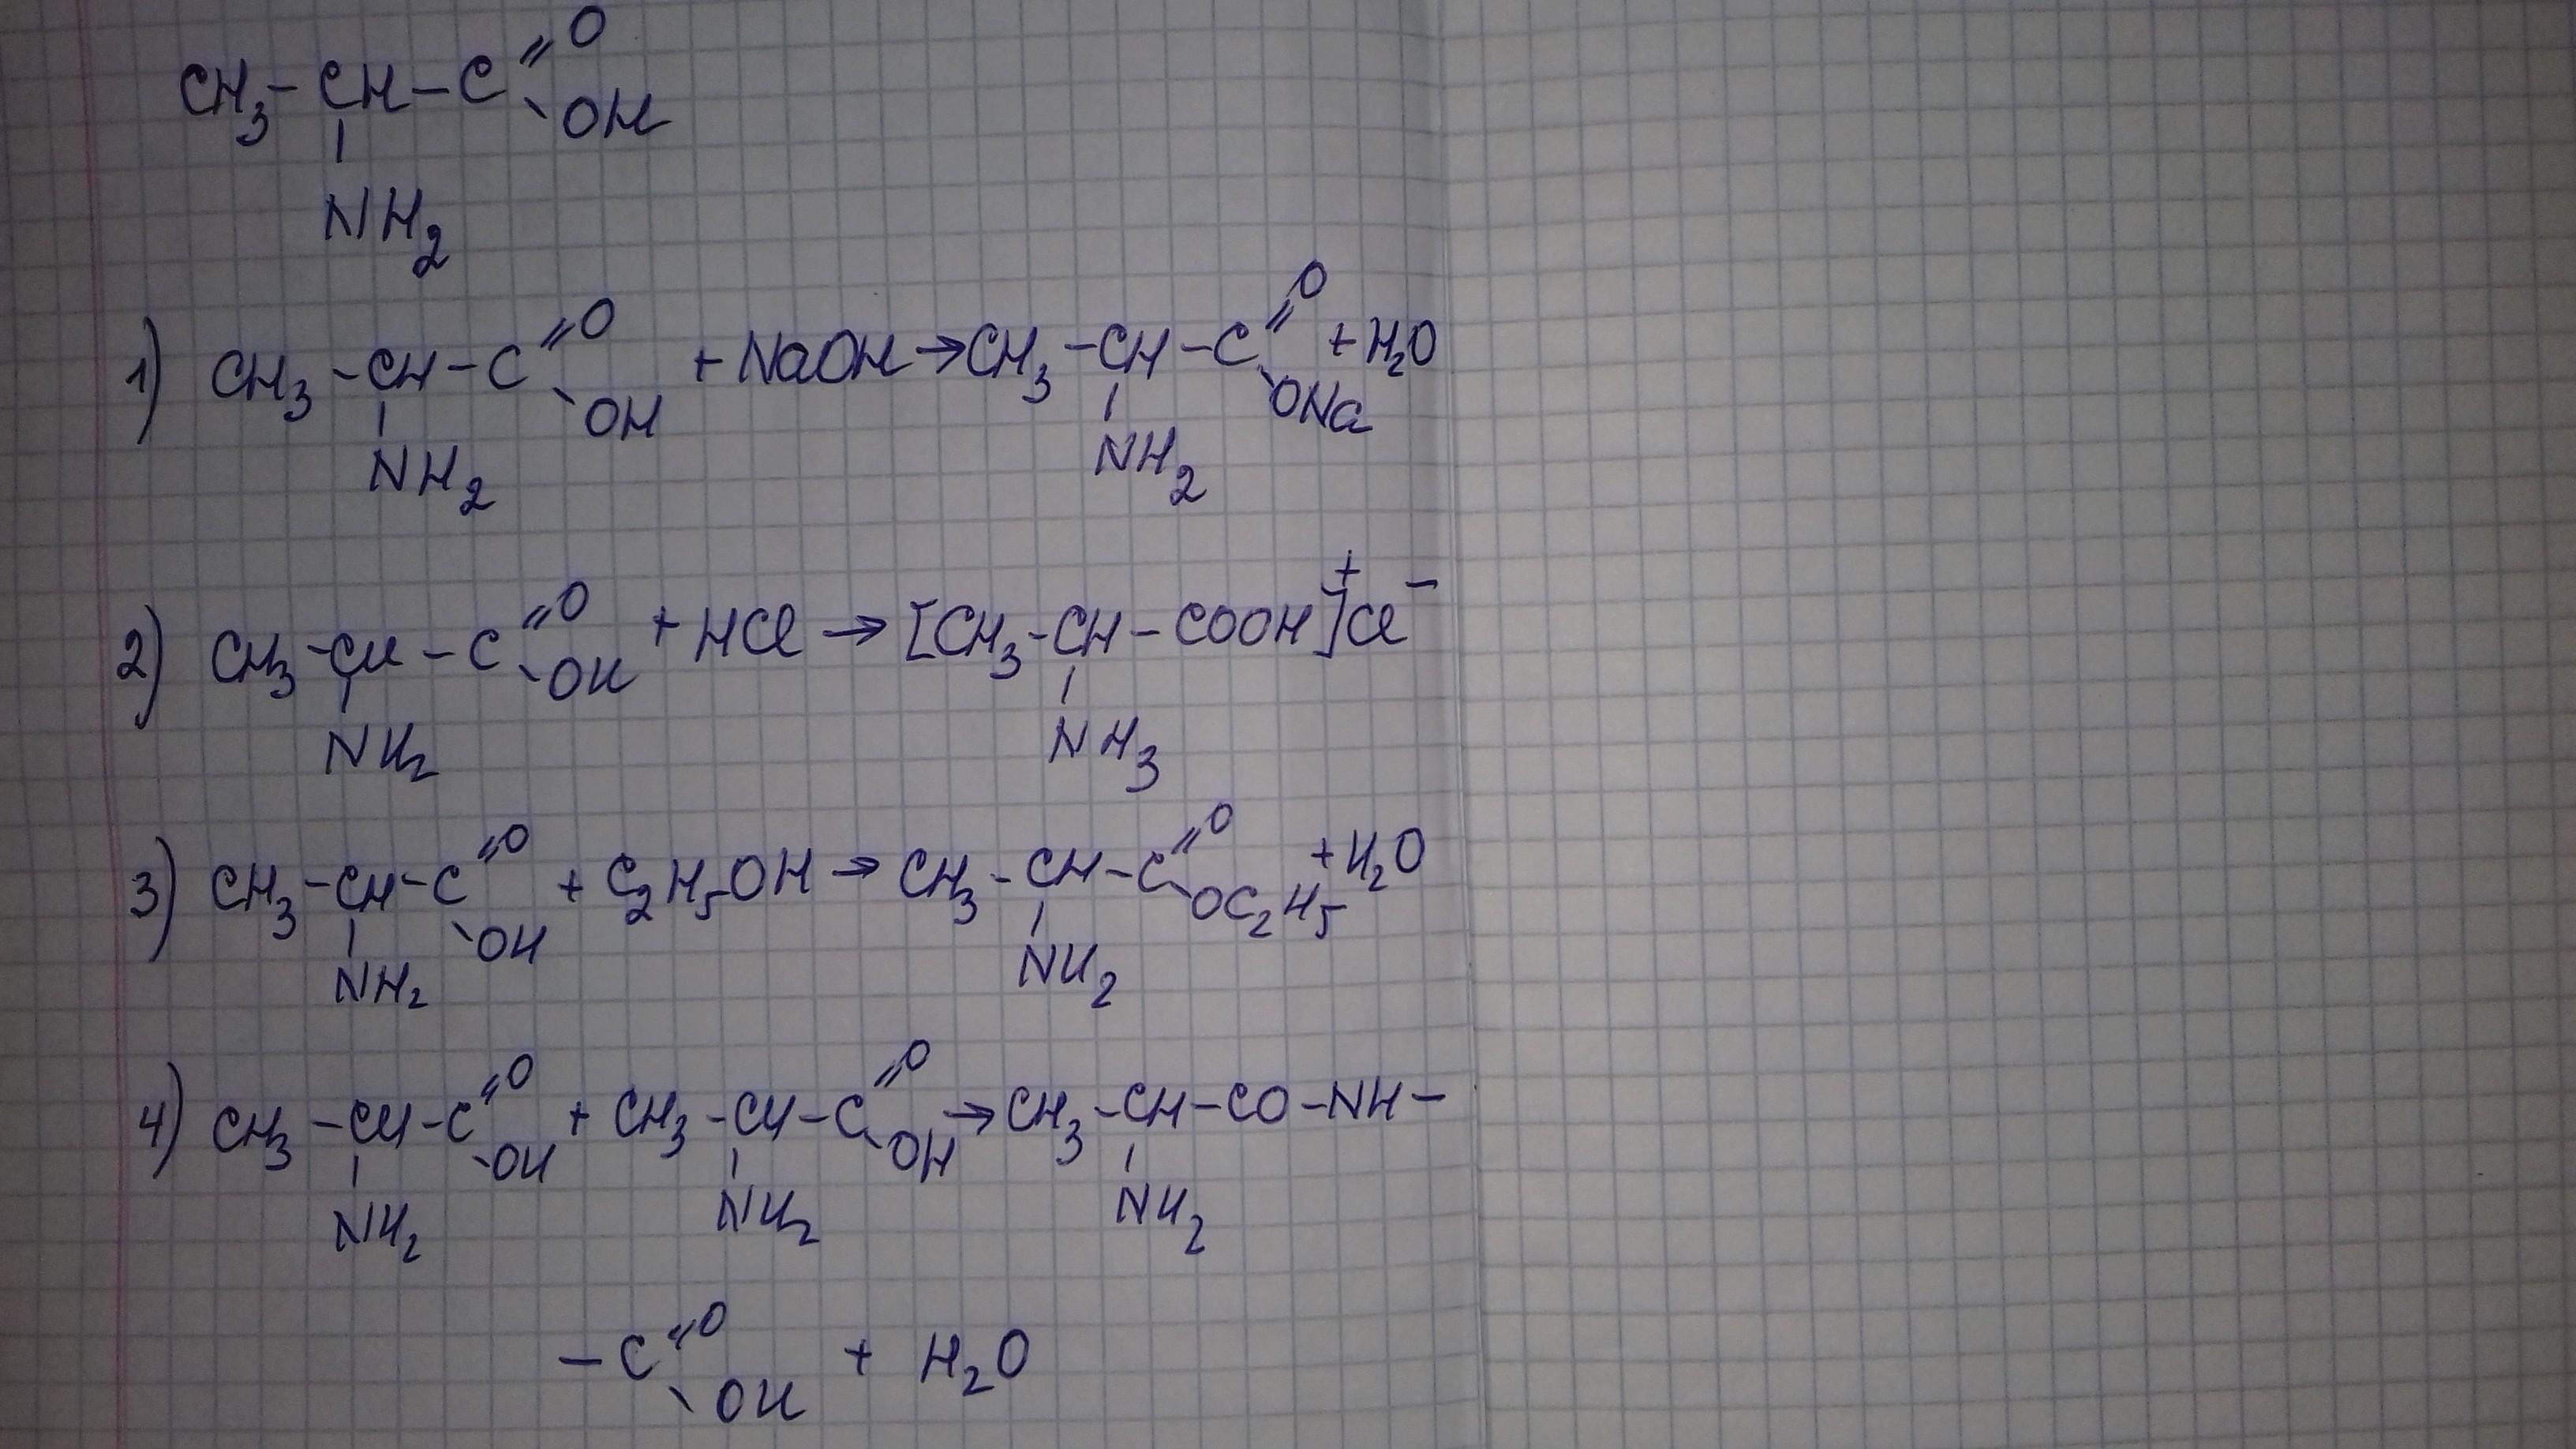 CH₃-CH-C⫽O
\OH
|
NH₂
1) CH₃-CH-C⫽O\OH + NaOH → CH₃-CH-C⫽O\ONa + H₂O
| |
NH₂ NH₂
2) CH₃-CH-C⫽O\OH + HCl → [CH₃-CH-COOH]⁺Cl⁻
| |
NH₂ NH₃
3) CH₃-CH-C⫽O\OH + C₂H₅OH → CH₃-CH-C⫽O\OC₂H₅ + H₂O
| |
NH₂ NH₂
4) CH₃-CH-C⫽O\OH + CH₃-CH-C⫽O\OH → CH₃-CH-CO-NH-
| | |
NH₂ NH₂ NH₂
-C⫽O\OH + H₂O